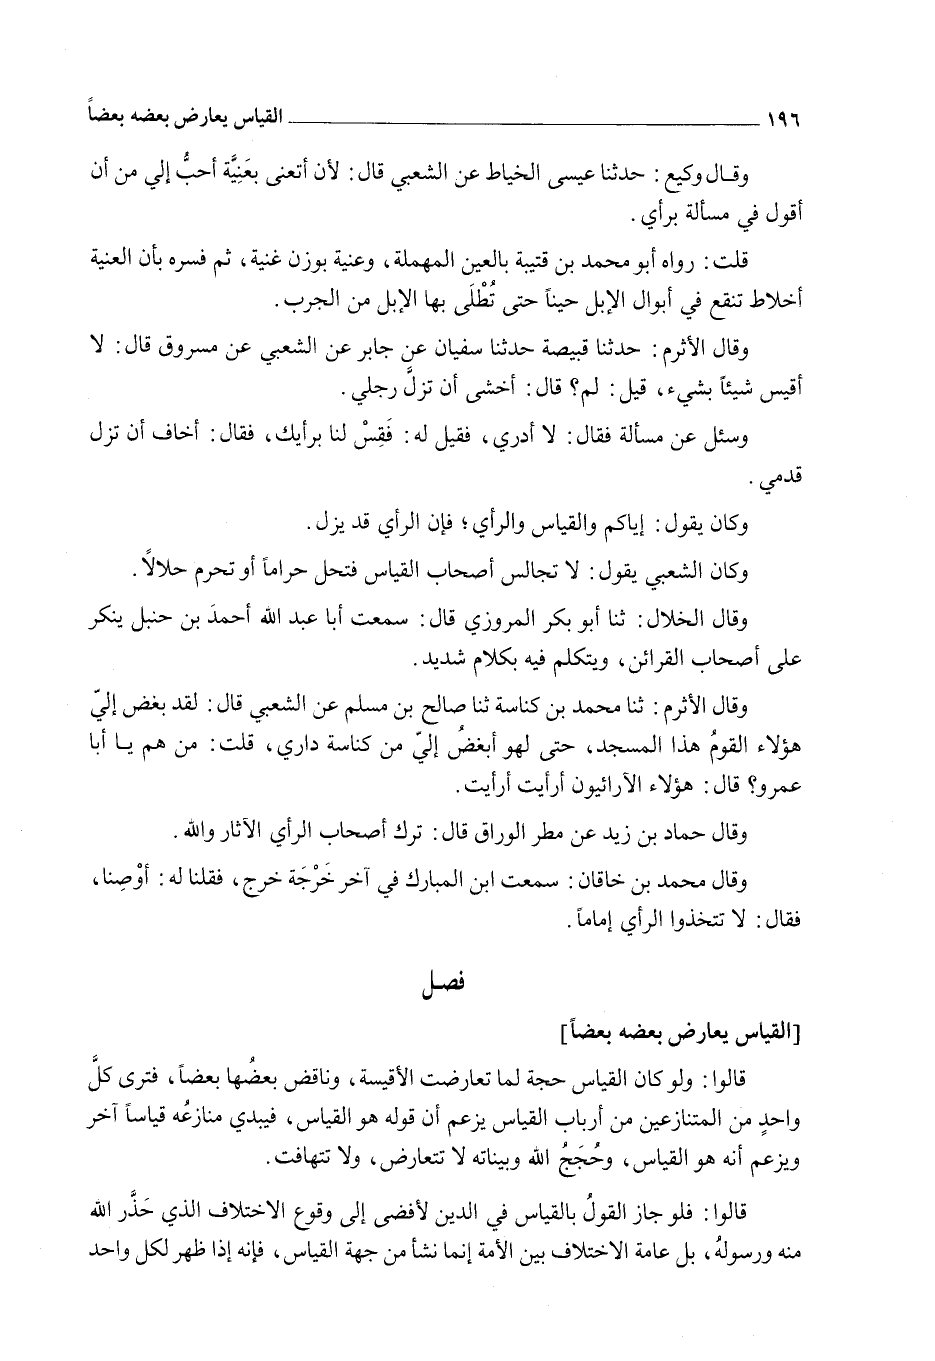 ١٩٦ ــــــــــــــــــــــــــــــــــــ القياس يعارض بعضه بعضاً
وقال وكيع: حدثنا عيسى الخياط عن الشعبي قال: لأن أتعنى بعَنِيَّة أحبُّ إلي من أن
أقول في مسألة برأي.
قلت: رواه أبو محمد بن قتيبة بالعين المهملة، وعنية بوزن غنية، ثم فسره بأن العنية
أخلاط تنقع في أبوال الإبل حيناً حتى تُطْلَى بها الإبل من الجرب.
وقال الأثرم: حدثنا قبيصة حدثنا سفيان عن جابر عن الشعبي عن مسروق قال: لا
أقيس شيئاً بشيء، قيل: لم؟ قال: أخشى أن تزلَّ رجلي.
وسئل عن مسألة فقال: لا أدري، فقيل له: فَقِسْ لنا برأيك، فقال: أخاف أن تزل
قدمي.
وكان يقول: إياكم والقياس والرأي؛ فإن الرأي قد يزل.
وكان الشعبي يقول: لا تجالس أصحاب القياس فتحل حراماً أو تحرم حلالاً.
وقال الخلال: ثنا أبو بكر المروزي قال: سمعت أبا عبد الله أحمدَ بن حنبل ينكر
على أصحاب القرائن، ويتكلم فيه بكلام شديد.
وقال الأثرم: ثنا محمد بن كناسة ثنا صالح بن مسلم عن الشعبي قال: لقد بغض إليّ
هؤلاء القومُ هذا المسجد، حتى لهو أبغضُ إليّ من كناسة داري، قلت: من هم يا أبا
عمرو؟ قال: هؤلاء الآرائيون أرأيت أرأيت.
وقال حماد بن زيد عن مطر الوراق قال: ترك أصحاب الرأي الآثار والله.
وقال محمد بن خاقان: سمعت ابن المبارك في آخر خَرْجَة خرج، فقلنا له: أوْصِنا،
فقال: لا تتخذوا الرأي إماماً.
فصل
[القياس يعارض بعضه بعضاً]
قالوا: ولو كان القياس حجة لما تعارضت الأقيسة، وناقض بعضُها بعضاً، فترى كلَّ
واحدٍ من المتنازعين من أرباب القياس يزعم أن قوله هو القياس، فيبدي منازعُه قياساً آخر
ويزعم أنه هو القياس، وحُجَجُ الله وبيناته لا تتعارض، ولا تتهافت.
قالوا: فلو جاز القولُ بالقياس في الدين لأفضى إلى وقوع الاختلاف الذي حَذَّر الله
منه ورسولهُ، بل عامة الاختلاف بين الأمة إنما نشأ من جهة القياس، فإنه إذا ظهر لكل واحد